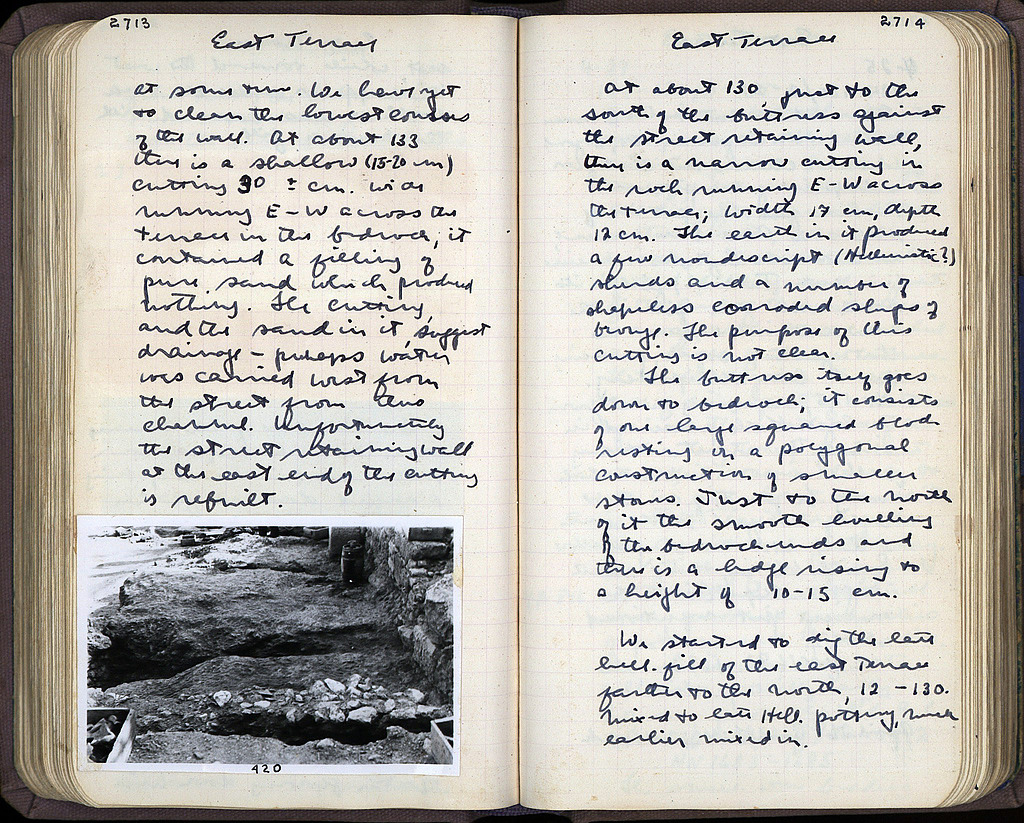 2713
East Terrace
at some time. We have yet
to clean the lowest courses
of the wall. At about 133
there is a shallow (15-20 cm)
cutting 30 ± cm. wide
running E-W across the
terrace in the bedrock; it
contained a filling of
pure sand which produced
nothing. The cutting,
and the sand in it, suggest
drainage - perhaps water
was carried west from
the street from this
channel. Unfortunately
the street retaining wall
at the east end of the cutting
is rebuilt.
420
2714
East Terrace
At about 130, just to the
south of the buttress against
the street retaining wall,
there is a narrow cutting in
the rock running E-W across
the terrace; width 17 cm, depth
12 cm. The earth in it produced
a few nondescript (Hellenistic?)
sherds and a number of
shapeless corroded slugs of
bronze. The purpose of this
cutting is not clear.
The buttress itself goes
down to bedrock; it consists
of one large squared block
resting on a polygonal
construction of smaller
stones. Just to the north
of it the smooth levelling
of the bedrock ends and
there is a ledge rising to
a height of 10-15 cm.
We started to dig the late
hell. fill of the east Terrace
farther to the north, 12 -130.
Mixed to late Hell. pottery, much
earlier mixed in.